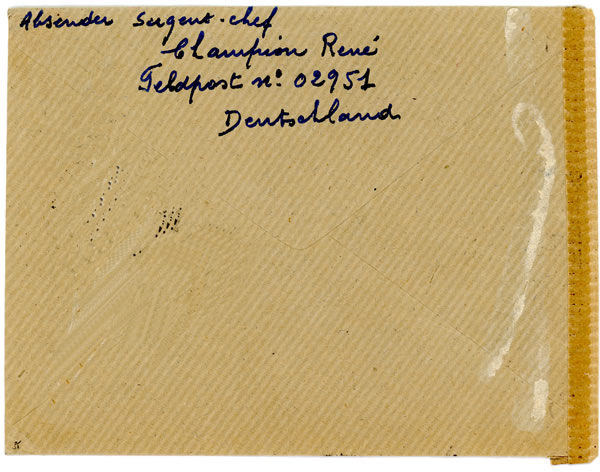 Absender Sergent-chef
Champion René
Feldpost nº 02951
Deutschland